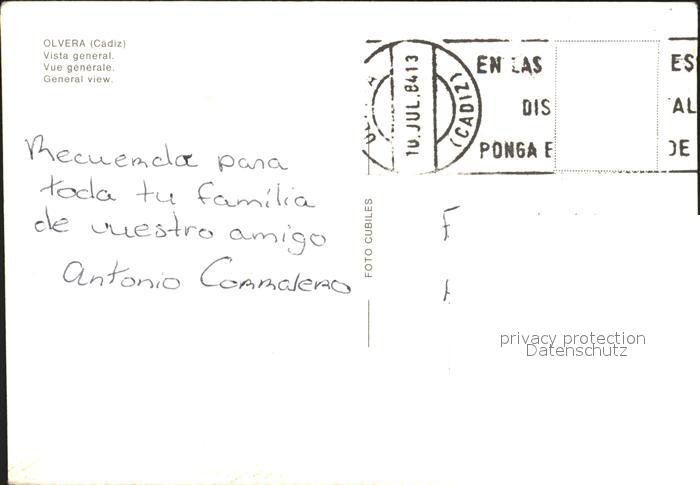 OLVERA (Cádiz)
Vista general.
Vue générale.
General view.
EN LAS ES
DIS AL
PONGA E DE
10.JUL.8413
(CADIZ)
Recuerda para
toda tu familia
de vuestro amigo
Antonio Corralero
FOTO CUBILES
F
privacy protection
Datenschutz